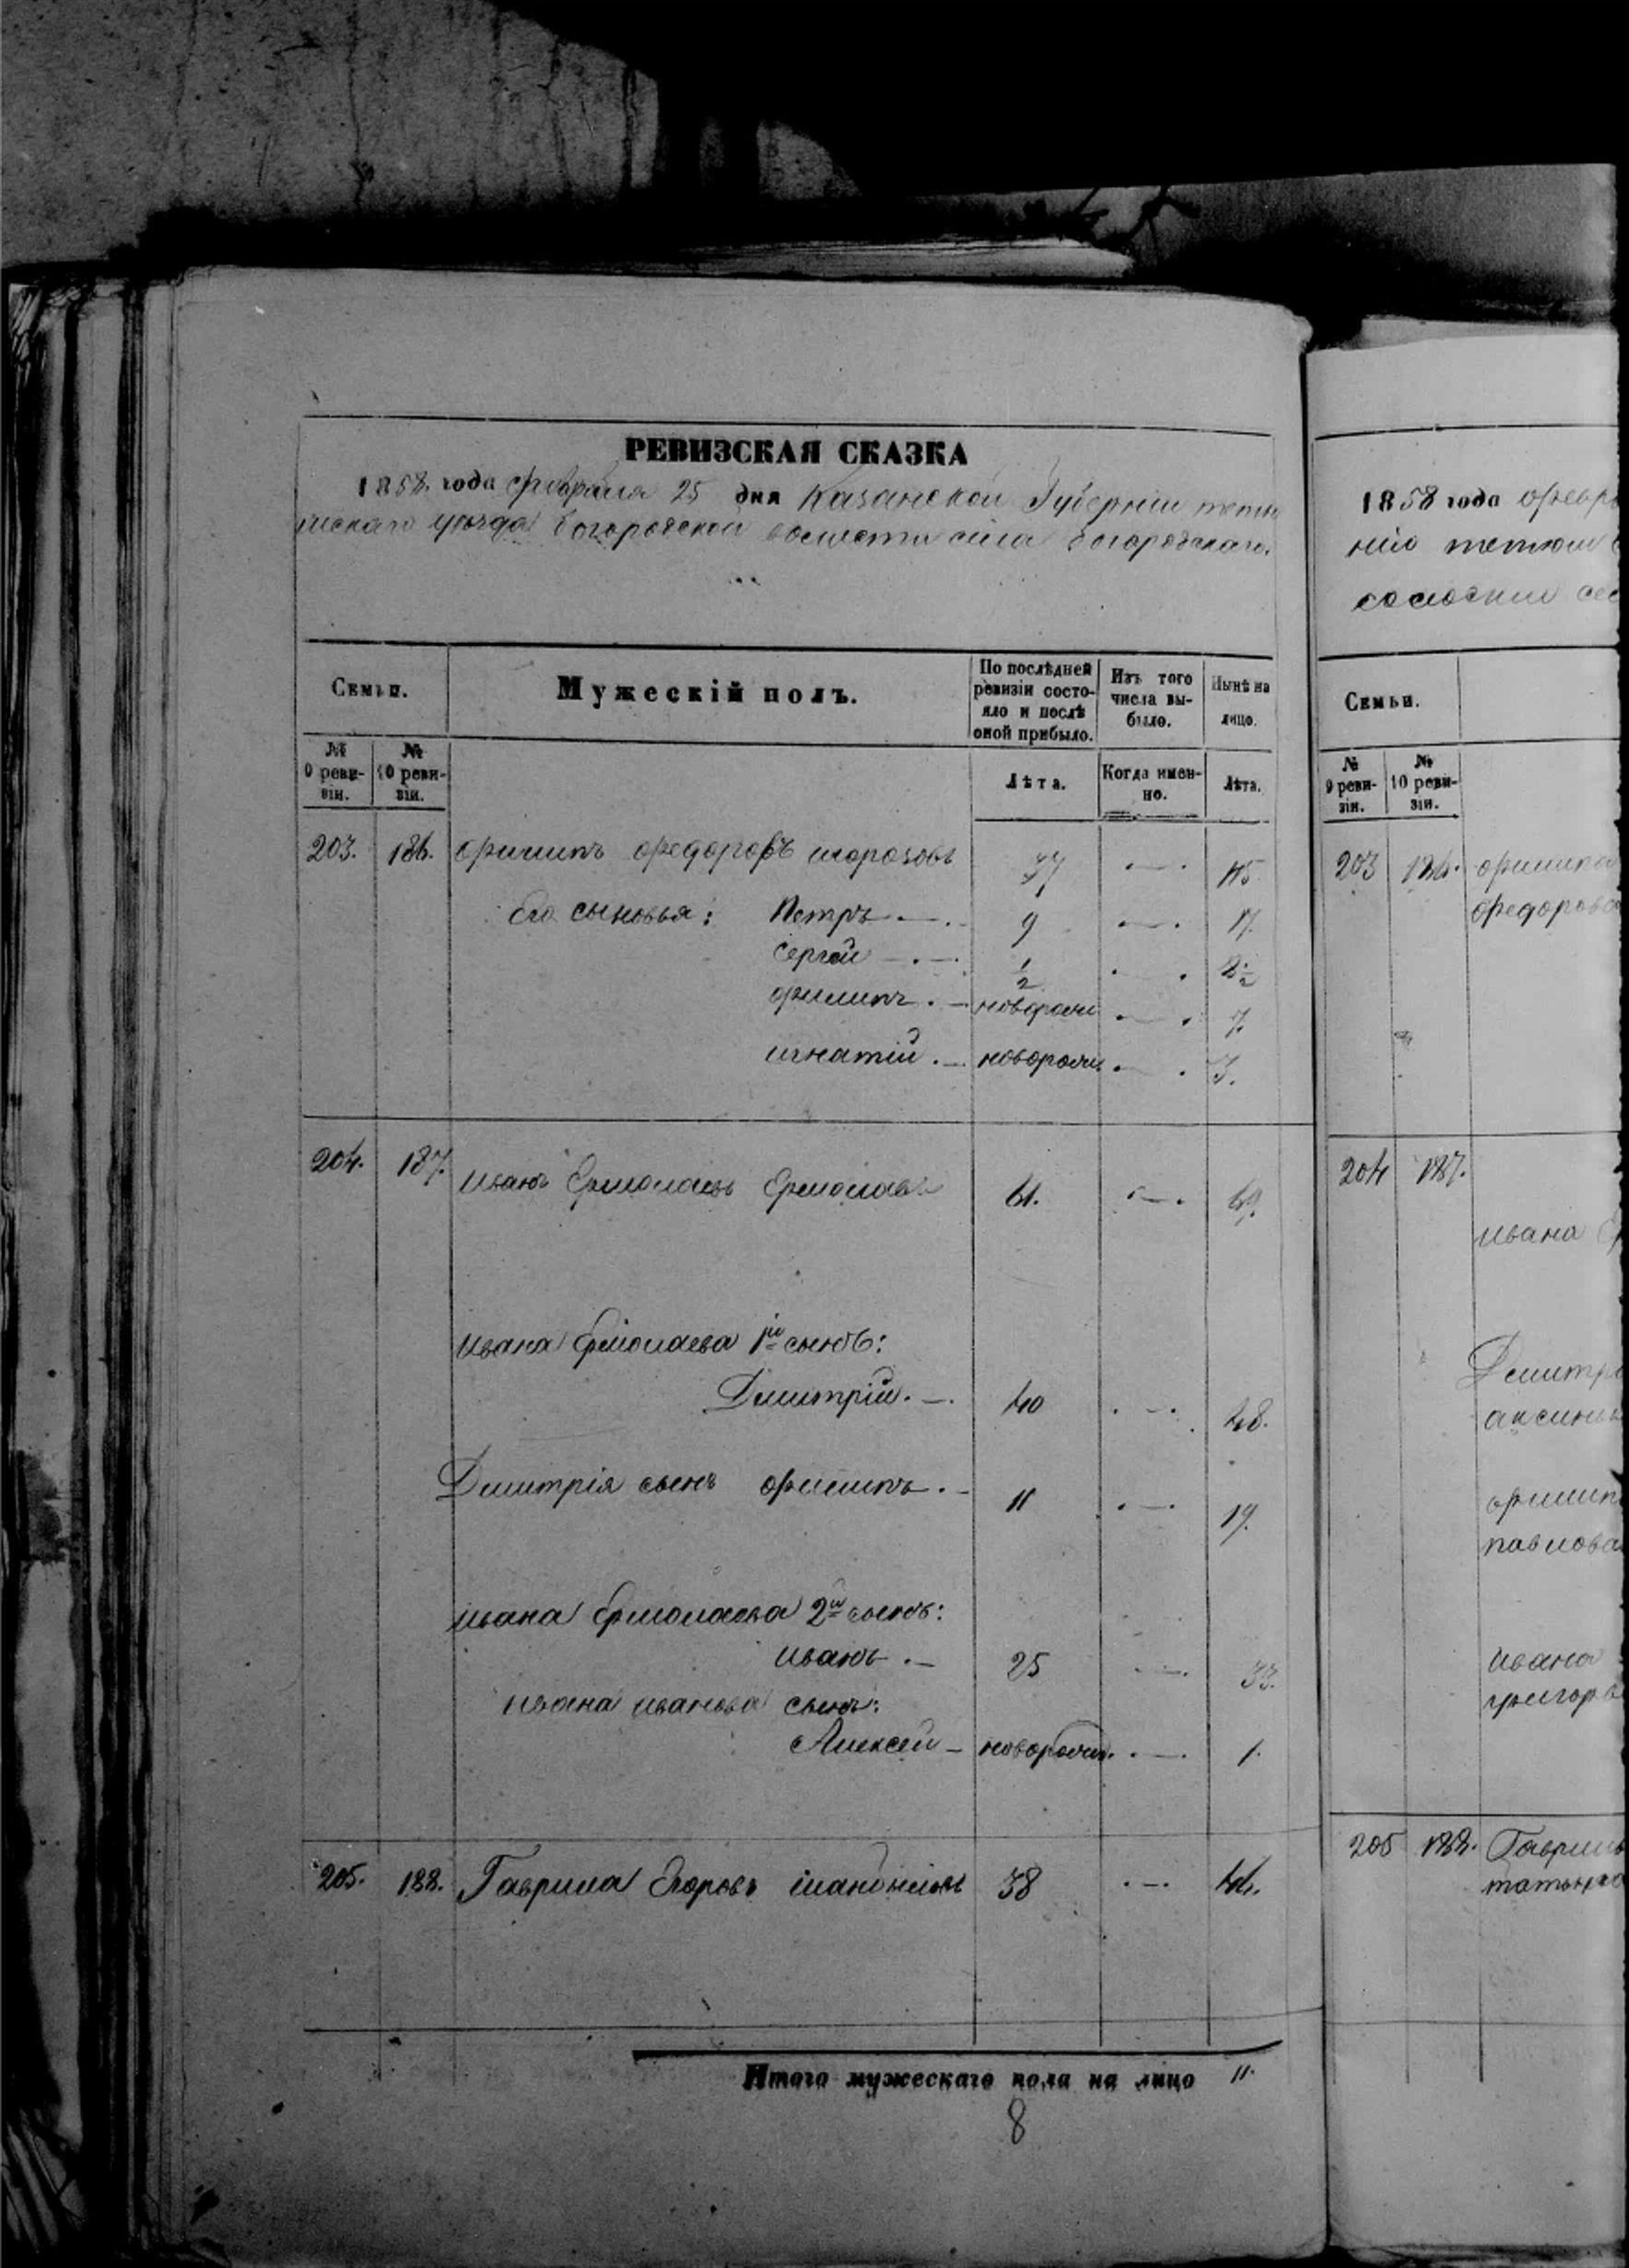 РЕВИЗСКАЯ СКАЗКА
1858 года февраля 25 дня Казанской Губерніи тетю
шскаго уѣзда Богородской волости села Богородскаго.
Семьи. Мужескій полъ. По послѣдней ревизіи состояло и послѣ оной прибыло. Изъ того числа выбыло. Нынѣ на лицо.
№ 9 ревизіи. № 10 ревизіи. Лѣта. Когда именно. Лѣта.
203. 186. филипъ федоровъ морозовъ 37 — 45
Его сыновья: Петръ — 9 — 17.
Сергей — 1/2 — 8 1/2
филипъ — новорожд — 7.
игнатій — новорожд. — 3.
204. 187. иванъ Ермолаевъ Ермолаевъ 61. — 69.
ивана Ермолаева 1й сынъ:
Дмитрій — 40 — 48.
Дмитрія сынъ филипъ — 11 — 19.
ивана Ермолаева 2й сынъ:
иванъ — 25 — 33.
ивана иванова сынъ:
Алексей — новорожд. — 1.
205. 188. Гаврила Егоровъ 38 — 46.
Итого мужескаго пола на лицо 11.
8
1858 года февр
ніи тетюш
Семьи.
№ 9 ревизіи. № 10 ревизіи.
203 186. филипа
федорова
204 187.
ивана Е
Дмитрі
аксинь
филип
павлова
ивана
григорь
205 188. Гаврил
татьяна